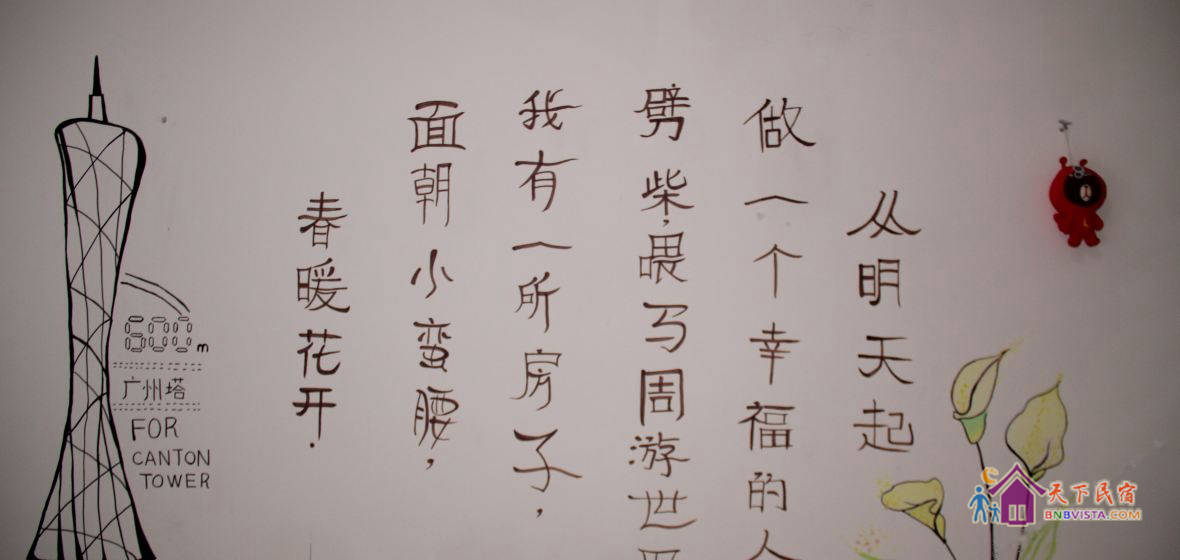 从明天起
做一个幸福的人
劈柴，喂马周游世界
我有一所房子，
面朝小蛮腰，
春暖花开．
600m
广州塔
FOR
CANTON
TOWER
天下民宿
BNBVISTA.COM